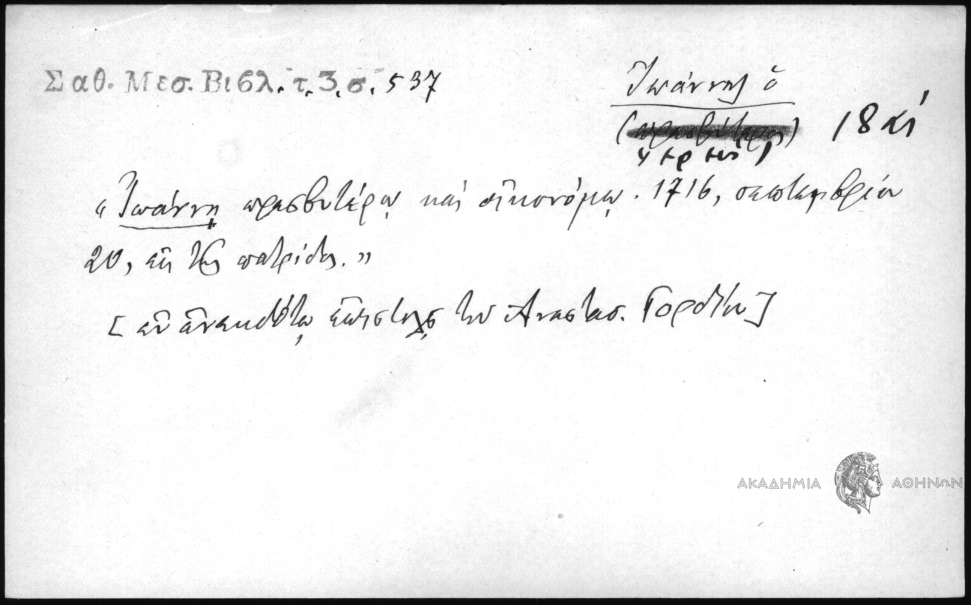 Σαθ. Μεσ. Βιβλ. τ. 3. σ. 537
Ἰωάννης ὁ
(πρεσβύτερος)
ἱερεύς
18 αἰ
« Ἰωάννῃ πρεσβυτέρῳ καὶ οἰκονόμῳ. 1716, σεπτεμβρίου
20, ἐκ τῆς πατρίδος. »
[ ἐν ἀνεκδότῳ ἐπιστολῇ τοῦ Ἀναστασ. Γορδίου ]
ΑΚΑΔΗΜΙΑ ΑΘΗΝΩΝ